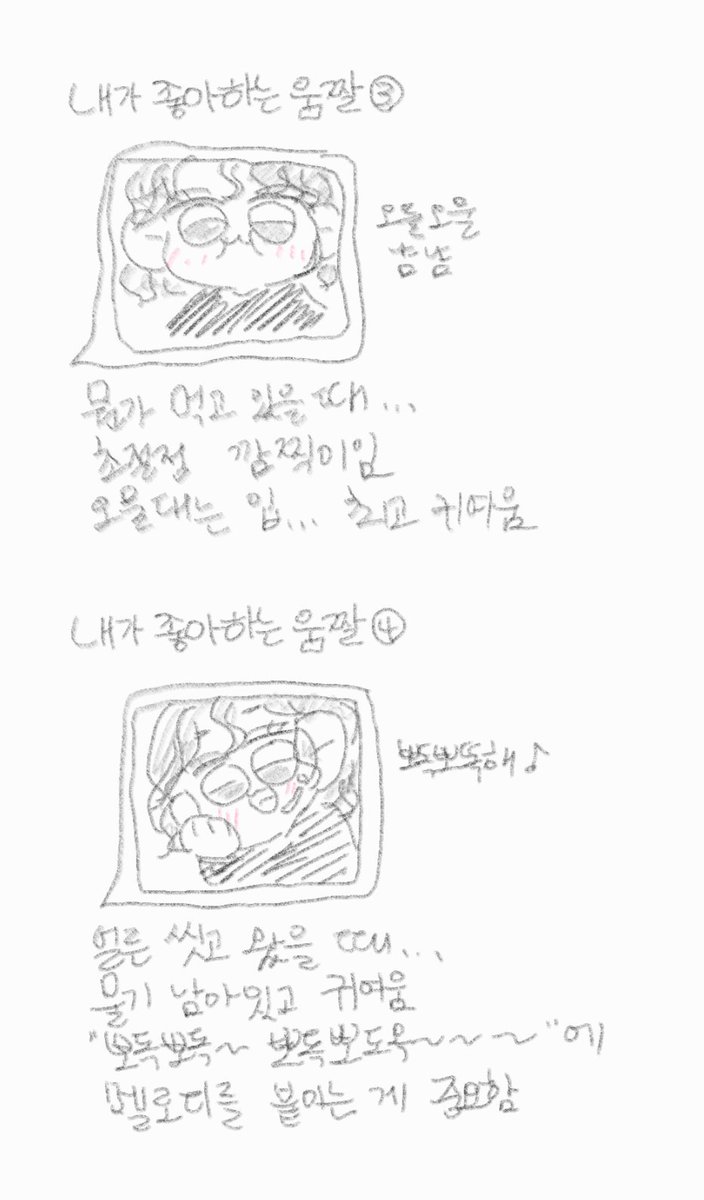 내가 좋아하는 움짤 ③
오물오물
냠냠
뭔가 먹고 있을 때...
초절정 깜찍이임
오물대는 입... 최고 귀다움
내가 좋아하는 움짤 ④
뽀독뽀독해♪
얼른 씻고 왔을 때...
물기 남아있고 귀여움
"뽀독뽀독~ 뽀독뽀도옥~~~"에
멜로디를 붙이는 게 중요함